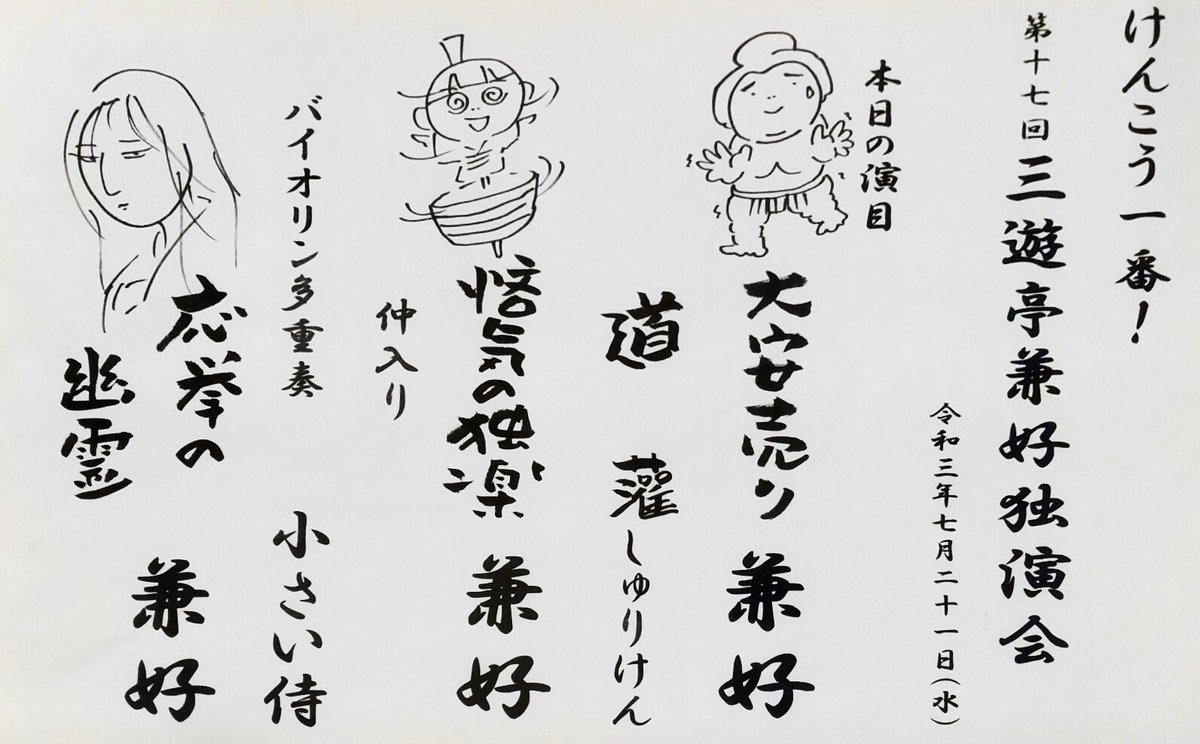 けんこう一番！
第十七回 三遊亭兼好独演会
令和三年七月二十一日（水）
本日の演目
大安売り 兼好
道灌 しゅりけん
悋気の独楽 兼好
仲入り
バイオリン多重奏 小さい侍
応挙の
幽霊 兼好